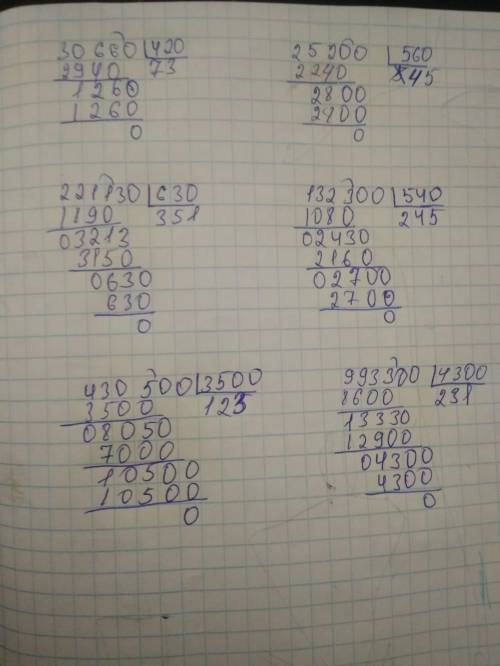 30660 420
2940 73
1260
1260
0
25200 560
2240 45
2800
2800
0
221130 630
1190 351
03213
3150
0630
630
0
132300 540
1080 245
02430
2160
02700
2700
0
430 500 3500
3500 123
08050
7000
10500
10500
0
993300 4300
8600 231
13330
12900
04300
4300
0